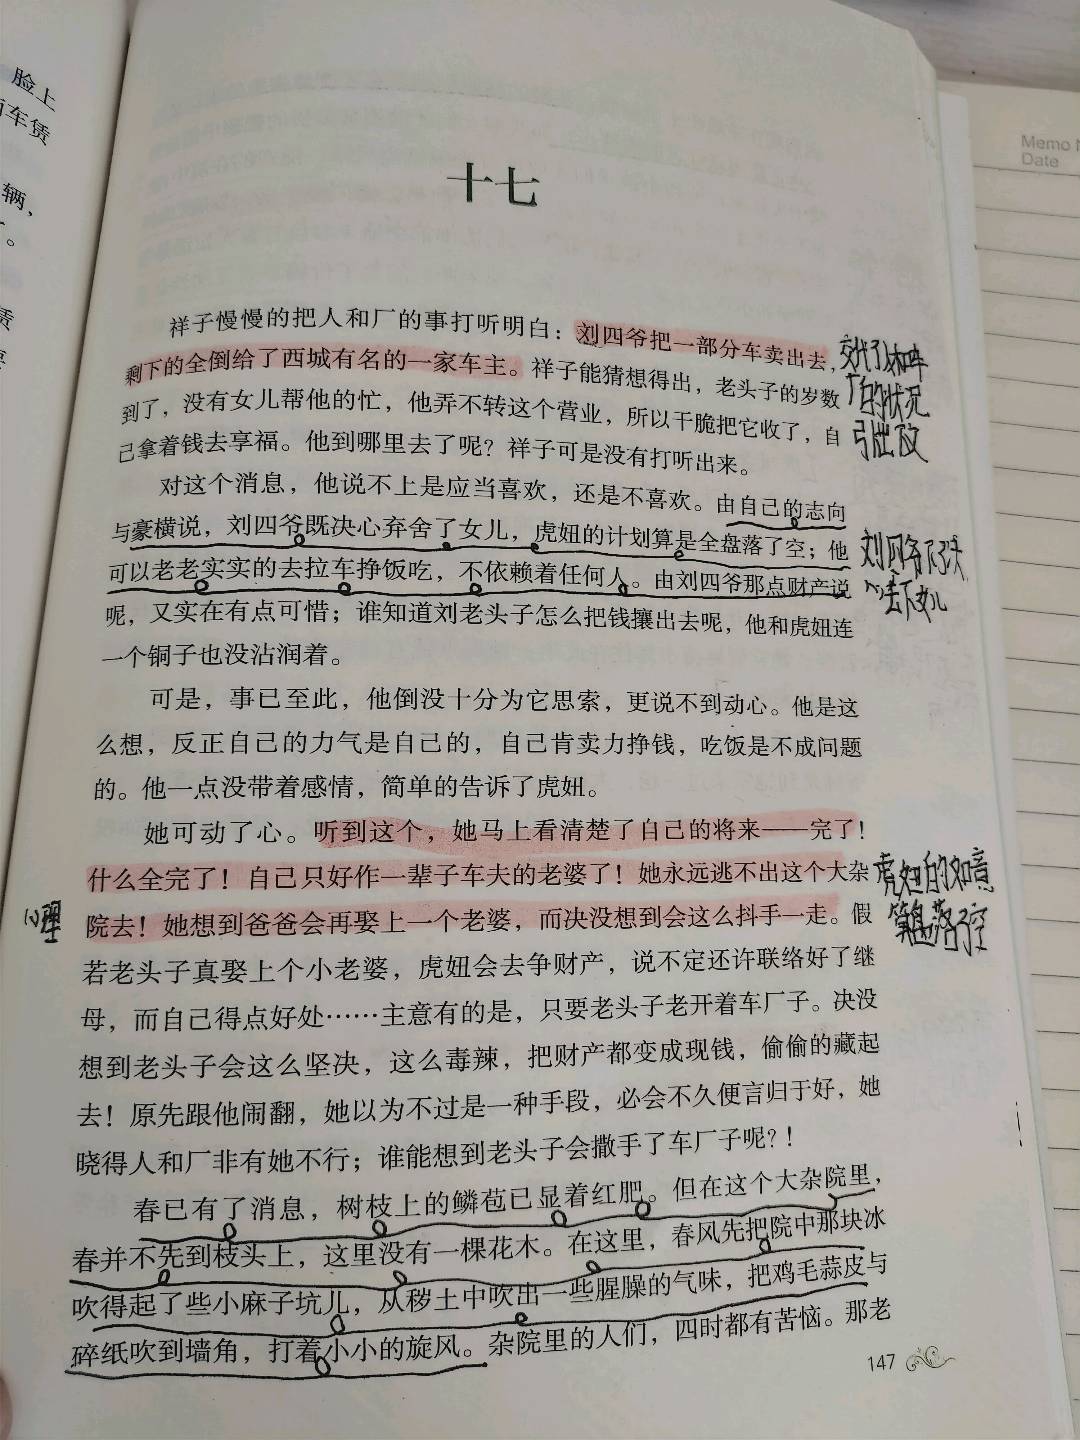 脸上
车赁
辆，
。
赁
Memo
Date
十七
祥子慢慢的把人和厂的事打听明白：刘四爷把一部分车卖出去，
剩下的全倒给了西城有名的一家车主。祥子能猜想得出，老头子的岁数
到了，没有女儿帮他的忙，他弄不转这个营业，所以干脆把它收了，自
己拿着钱去享福。他到哪里去了呢？祥子可是没有打听出来。
交代了人和车
厂的状况
引出下文
对这个消息，他说不上是应当喜欢，还是不喜欢。由自己的志向
与豪横说，刘四爷既决心弃舍了女儿，虎妞的计划算是全盘落了空；他
可以老老实实的去拉车挣饭吃，不依赖着任何人。由刘四爷那点财产说
呢，又实在有点可惜；谁知道刘老头子怎么把钱攘出去呢，他和虎妞连
一个铜子也没沾润着。
刘四爷下了决
心丢下女儿
可是，事已至此，他倒没十分为它思索，更说不到动心。他是这
么想，反正自己的力气是自己的，自己肯卖力挣钱，吃饭是不成问题
的。他一点没带着感情，简单的告诉了虎妞。
她可动了心。听到这个，她马上看清楚了自己的将来——完了！
什么全完了！自己只好作一辈子车夫的老婆了！她永远逃不出这个大杂
院去！她想到爸爸会再娶上一个老婆，而决没想到会这么抖手一走。假
若老头子真娶上个小老婆，虎妞会去争财产，说不定还许联络好了继
母，而自己得点好处……主意有的是，只要老头子老开着车厂子。决没
想到老头子会这么坚决，这么毒辣，把财产都变成现钱，偷偷的藏起
去！原先跟他闹翻，她以为不过是一种手段，必会不久便言归于好，她
晓得人和厂非有她不行；谁能想到老头子会撒手了车厂子呢？！
心理
虎妞的如意
算盘落了空
春已有了消息，树枝上的鳞苞已显着红肥。但在这个大杂院里，
春并不先到枝头上，这里没有一棵花木。在这里，春风先把院中那块冰
吹得起了些小麻子坑儿，从秽土中吹出一些腥臊的气味，把鸡毛蒜皮与
碎纸吹到墙角，打着小小的旋风。杂院里的人们，四时都有苦恼。那老
147